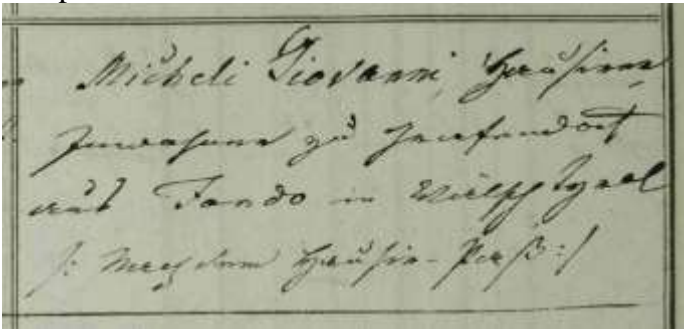 Micheli Giovanni, Hausierer,
Inwohner zu
aus Fondo in Wälsch Tyrol
/: Nach dem Hausir-Paß :/